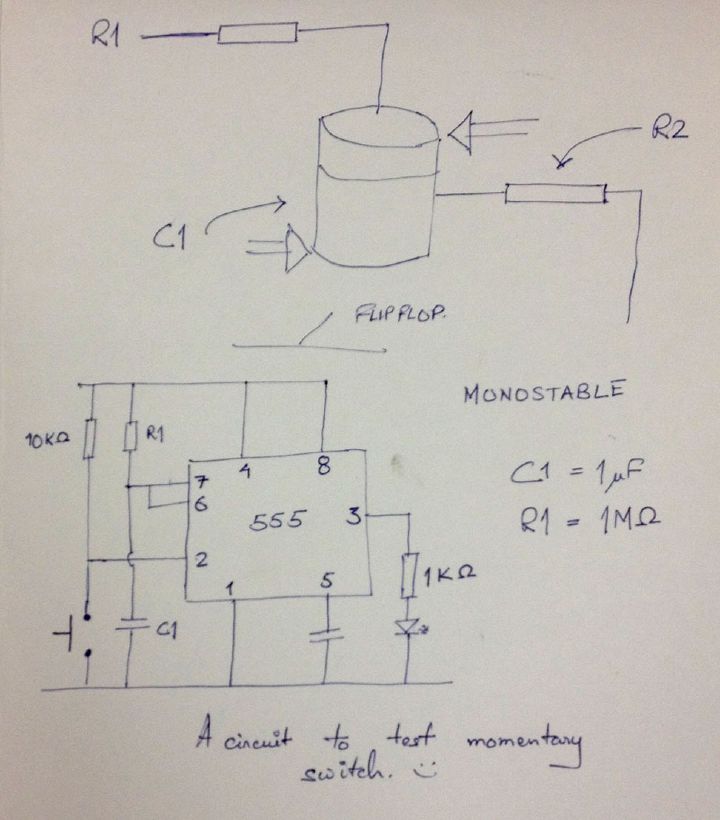 R1
R2
C1
FLIPFLOP.
MONOSTABLE
10KΩ
R1
4
8
7
6
555
3
C1 = 1µF
R1 = 1MΩ
2
1
5
1KΩ
C1
A circuit to test momentary
switch. :)